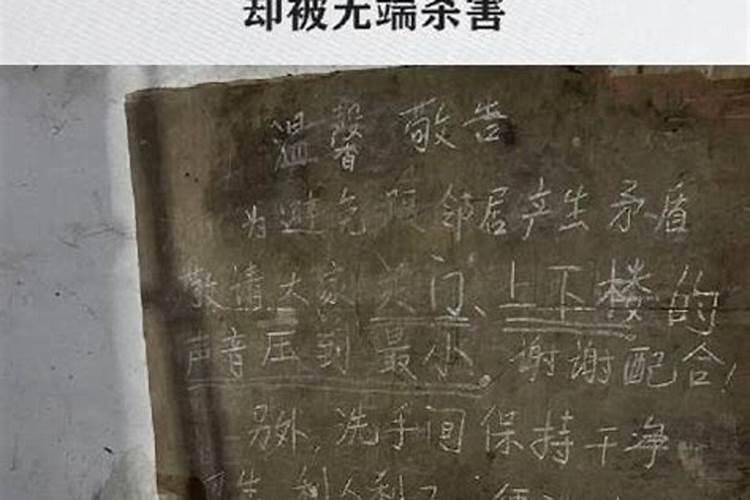 却被无端杀害
温馨敬告
为避免跟邻居产生矛盾
敬请大家关门、上下楼的
声音压到最小。谢谢配合！
另外，洗手间保持干净
利人利己